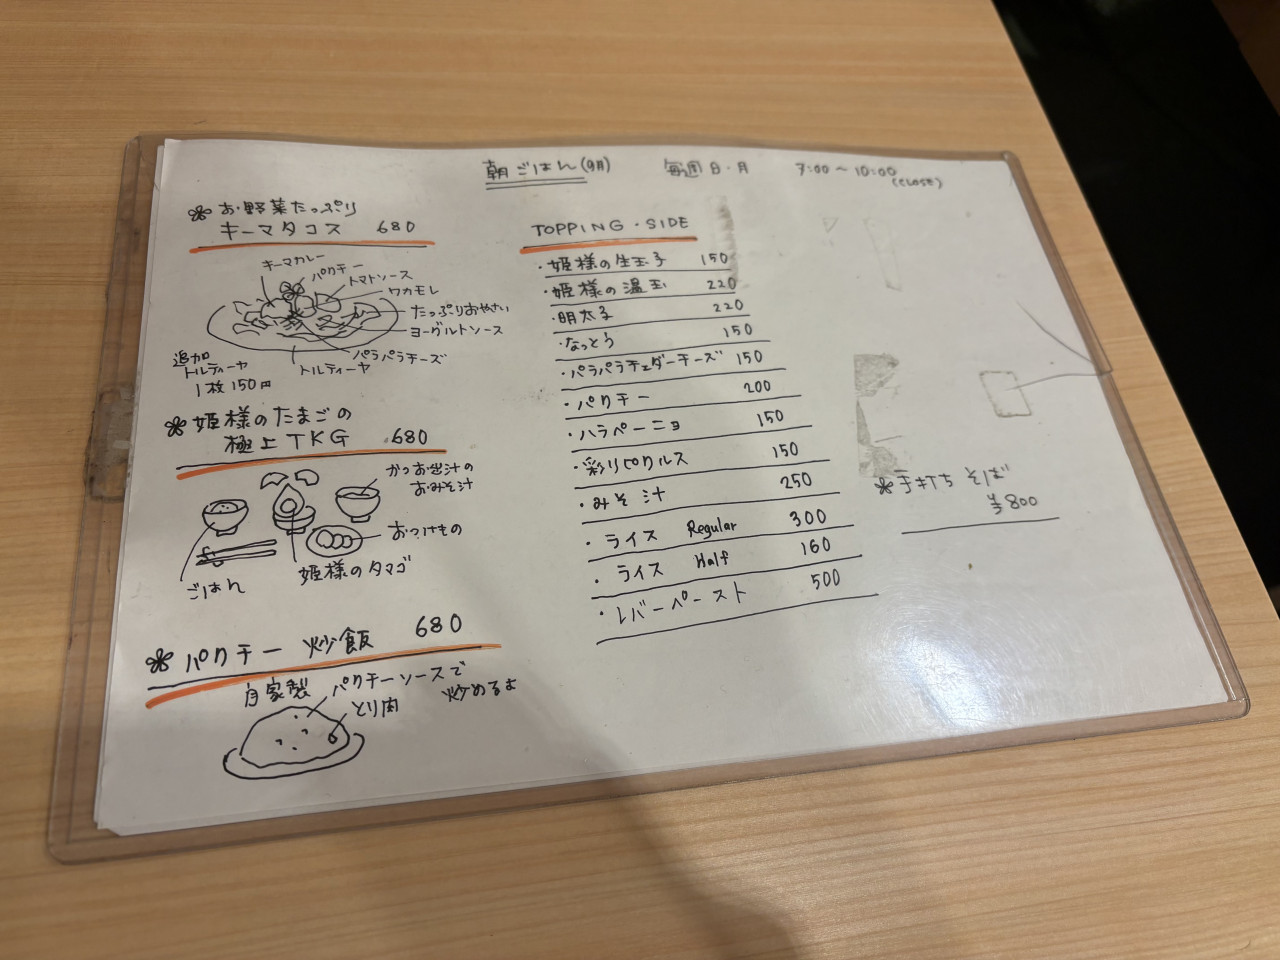 朝ごはん(9月) 毎週日・月 7:00〜10:00
(CLOSE)
お野菜たっぷり
キーマタコス 680
キーマカレー
パクチー
トマトソース
ワカモレ
たっぷりおやさい
ヨーグルトソース
パラパラチーズ
トルティーヤ
追加
トルティーヤ
1枚150円
姫様のたまごの
極上TKG 680
かつお出汁の
おみそ汁
おつけもの
姫様のタマゴ
ごはん
パクチー炒飯 680
自家製 パクチーソースで
炒めるよ
とり肉
TOPPING・SIDE
・姫様の生玉子 150
・姫様の温玉 220
・明太子 220
・なっとう 150
・パラパラチェダーチーズ 150
・パクチー 200
・ハラペーニョ 150
・彩りピクルス 150
・みそ汁 250
・ライス Regular 300
・ライス Half 160
・レバーペースト 500
手打ちそば
¥800